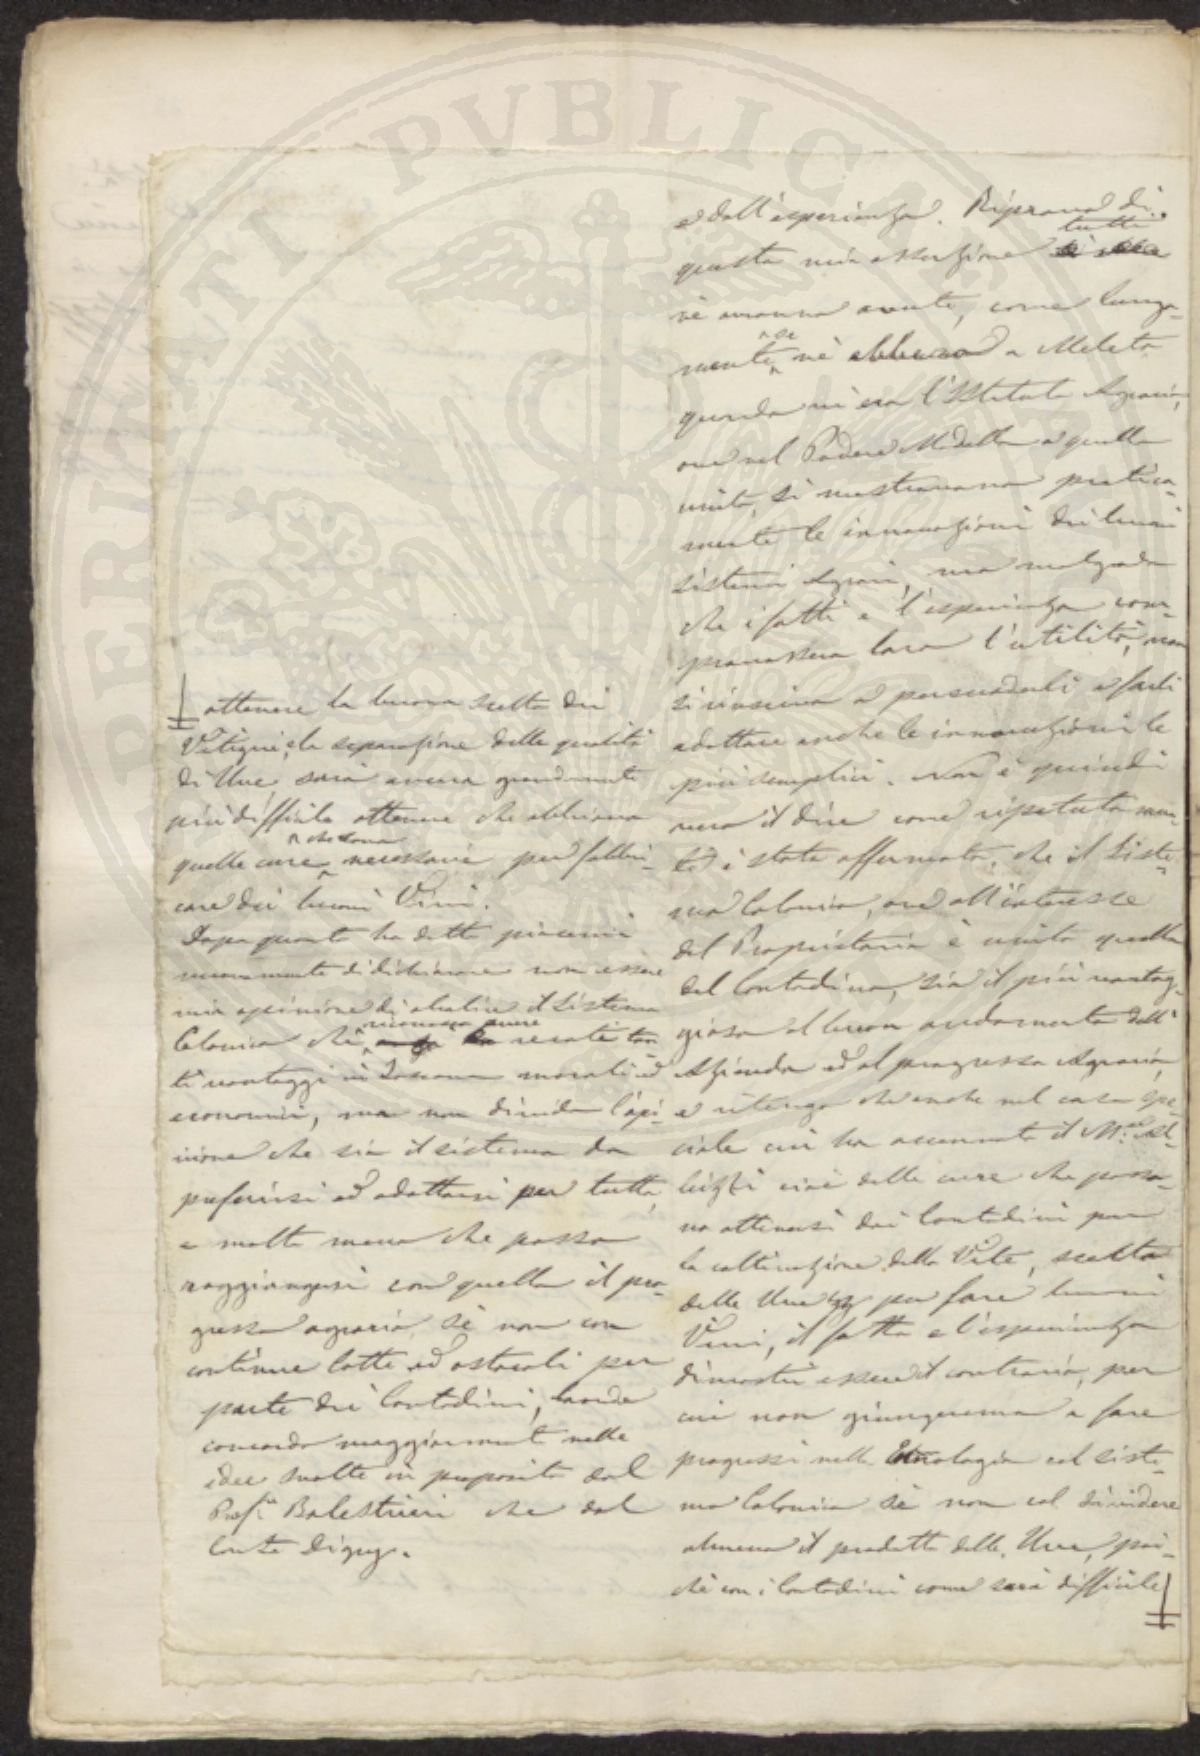 e dall'esperienza. Riprova di
questa mia asserzione tutti
ne avranno avute, come lunga-
mente se ne ebbero a Meleto
quando vi era l'Istituto Agrario,
ove nel Podere Modello a quello
unito, si mostravano pratica-
mente le innovazioni dei buoni
sistemi Agrari, ma malgrado
che i fatti e l'esperienza com-
provassero loro l'utilità, non
si riusciva a persuaderli e farli
adottare anche le innovazioni le
più semplici. Non è quindi
vero il dire come ripetutamen-
te è stato affermato, che il Siste-
ma Colonico, ove all'interesse
del Proprietario è unito quello
del Contadino, sia il più vantag-
gioso al buon andamento dell'
Azienda ed al progresso Agrario,
e ritengo che anche nel caso spe-
ciale cui ha accennato il M.se Al-
bizzi cioè delle cure che posso-
no ottenersi dai Contadini per
la coltivazione della Vite, scelta
delle Uve per fare buoni
Vini, il fatto e l'esperienza
dimostri essere il contrario, per
cui non giungeremo a fare
progressi nella Enologia col siste-
ma Colonico se non col dividere
almeno il prodotto delle Uve, poi-
chè con i Contadini come sarà difficile
ottenere la buona scelta dei
Vitigni, e la separazione delle qualità
di Uve, sarà ancora grandemente
più difficile ottenere che abbiano
quelle cure che sono necessarie per fabbri-
care dei buoni Vini.
Dopo quanto ho detto piacemi
nuovamente di dichiarare non essere
mia opinione di abolire il Sistema
Colonico che riconosco avere recato tan-
ti vantaggi in Toscana morali ed
economici, ma non divido l'opi-
nione che sia il sistema da
preferirsi ed adottarsi per tutto,
e molto meno che possa
raggiungersi con quello il pro-
gresso agrario, se non con
continue lotte ed ostacoli per
parte dei Contadini, onde
concordo maggiormente nelle
idee svolte in proposito dal
Prof.e Balestrieri che dal
Conte Digny.